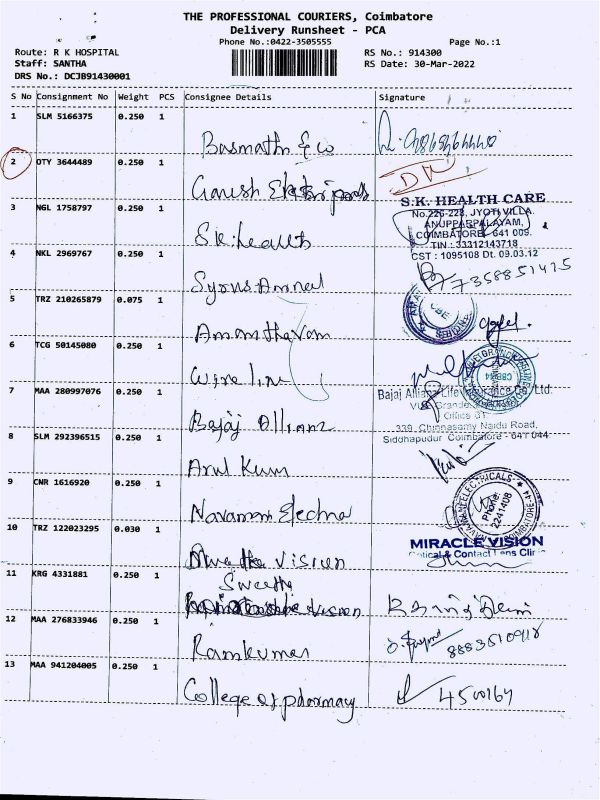 THE PROFESSIONAL COURIERS, Coimbatore
Delivery Runsheet - PCA
Phone No.:0422-3505555
Page No.:1
Route: R K HOSPITAL
RS No.: 914300
Staff: SANTHA
RS Date: 30-Mar-2022
DRS No.: DCJB91430001
S No Consignment No Weight PCS Consignee Details Signature
1 SLM 5166375 0.250 1
Basmathi & co
2 OTY 3644489 0.250 1
Ganesh
DN
3 NGL 1758797 0.250 1
S.K. Health
S.K. HEALTH CARE
No.226-228, JYOTI VILLA.
ANUPPARPALAYAM,
COIMBATORE - 641 009.
TIN : 33312143718
CST : 1095108 Dt. 09.03.12
4 NKL 2969767 0.250 1
7358851415
5 TRZ 210265879 0.075 1
CBE
6 TCG 50145080 0.250 1
Wire
7 MAA 280997076 0.250 1
Bajaj Allianz
Bajaj Allianz Life Insurance Co. Ltd.
339, Chinnasamy Naidu Road,
Siddhapudur Coimbatore - 641 044
8 SLM 292396515 0.250 1
Arul Kum
9 CNR 1616920 0.250 1
Electro
ELECTRICALS
Phone: 2241408
COIMBATORE-44
10 TRZ 122023295 0.030 1
Vision
MIRACLE VISION
Optical & Contact Lens Clinic
11 KRG 4331881 0.250 1
Swetha
Vision
12 MAA 276833946 0.250 1
Ramkumar
8883510918
13 MAA 941204005 0.250 1
College of pharmacy
4500164